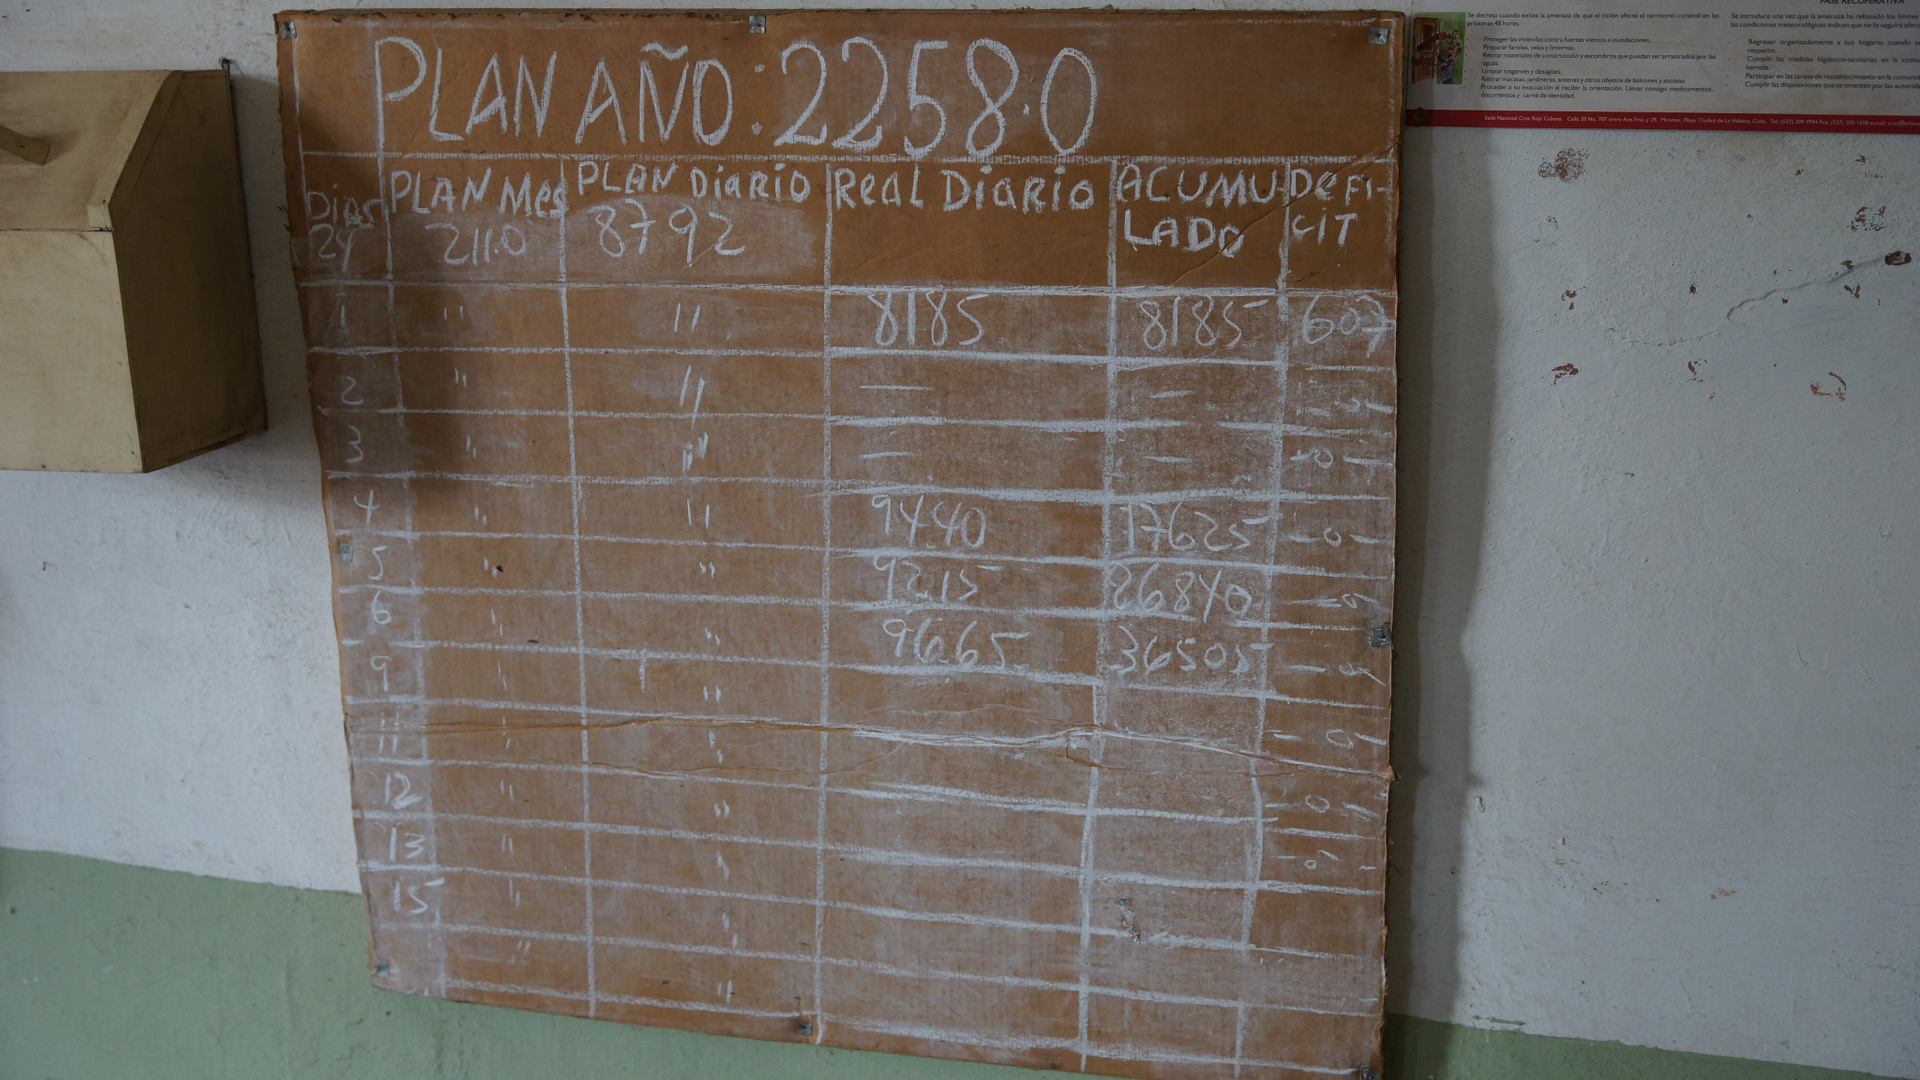 PLAN AÑO: 2258.0
Dias PLAN Mes PLAN Diario Real Diario ACUMU- DEFI-
24 211.0 8792 LADO CIT
1 " " 8185 8185 607
2 " " — —
3 " " — — -0-
4 " " 9440 17625 -0-
5 " " 9215 26840
6 " " 9665 36505
9 " "
11 " "
12 " "
13 " "
15 " "
" "
FASE RECUPERATIVA
Se decreta cuando existe la amenaza de que el ciclón afecte el territorio nacional en las
próximas 48 horas.
Proteger las viviendas contra fuertes vientos e inundaciones.
Preparar faroles, velas y linternas.
Retirar materiales de construcción y escombros que puedan ser arrastrados por las
aguas.
Limpiar tragantes y desagües.
Retirar macetas, jardineras, antenas y otros objetos de balcones y azoteas.
Proceder a su evacuación al recibir la orientación. Llevar consigo medicamentos,
documentos y carné de identidad.
Se introduce una vez que la amenaza ha rebasado los límites
las condiciones meteorológicas indican que no lo seguirá
Regresar organizadamente a sus hogares cuando
respecto.
Cumplir las medidas higiénico-sanitarias en la
hervida.
Participar en las tareas de restablecimiento en la
Cumplir las disposiciones que se orientan por las
Sede Nacional Cruz Roja Cubana. Calle 20 No. 707 entre Ave.7ma. y 29, Miramar, Playa, Ciudad de La Habana, Cuba.